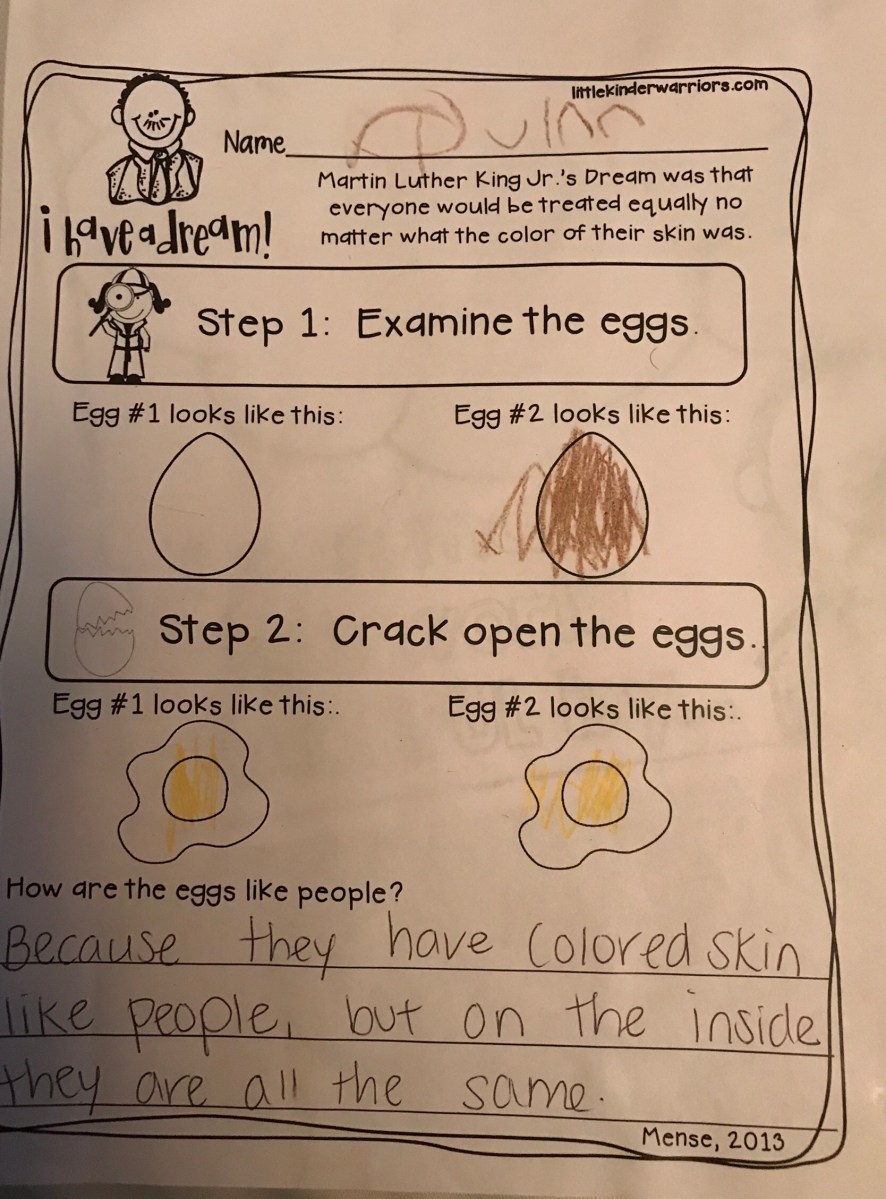 littlekinderwarriors.com
Name Quinn
Martin Luther King Jr.'s Dream was that
everyone would be treated equally no
matter what the color of their skin was.
i have a dream!
Step 1: Examine the eggs.
Egg #1 looks like this: Egg #2 looks like this:
Step 2: Crack open the eggs.
Egg #1 looks like this:. Egg #2 looks like this:.
How are the eggs like people?
Because they have colored skin
like people, but on the inside
they are all the same.
Mense, 2013